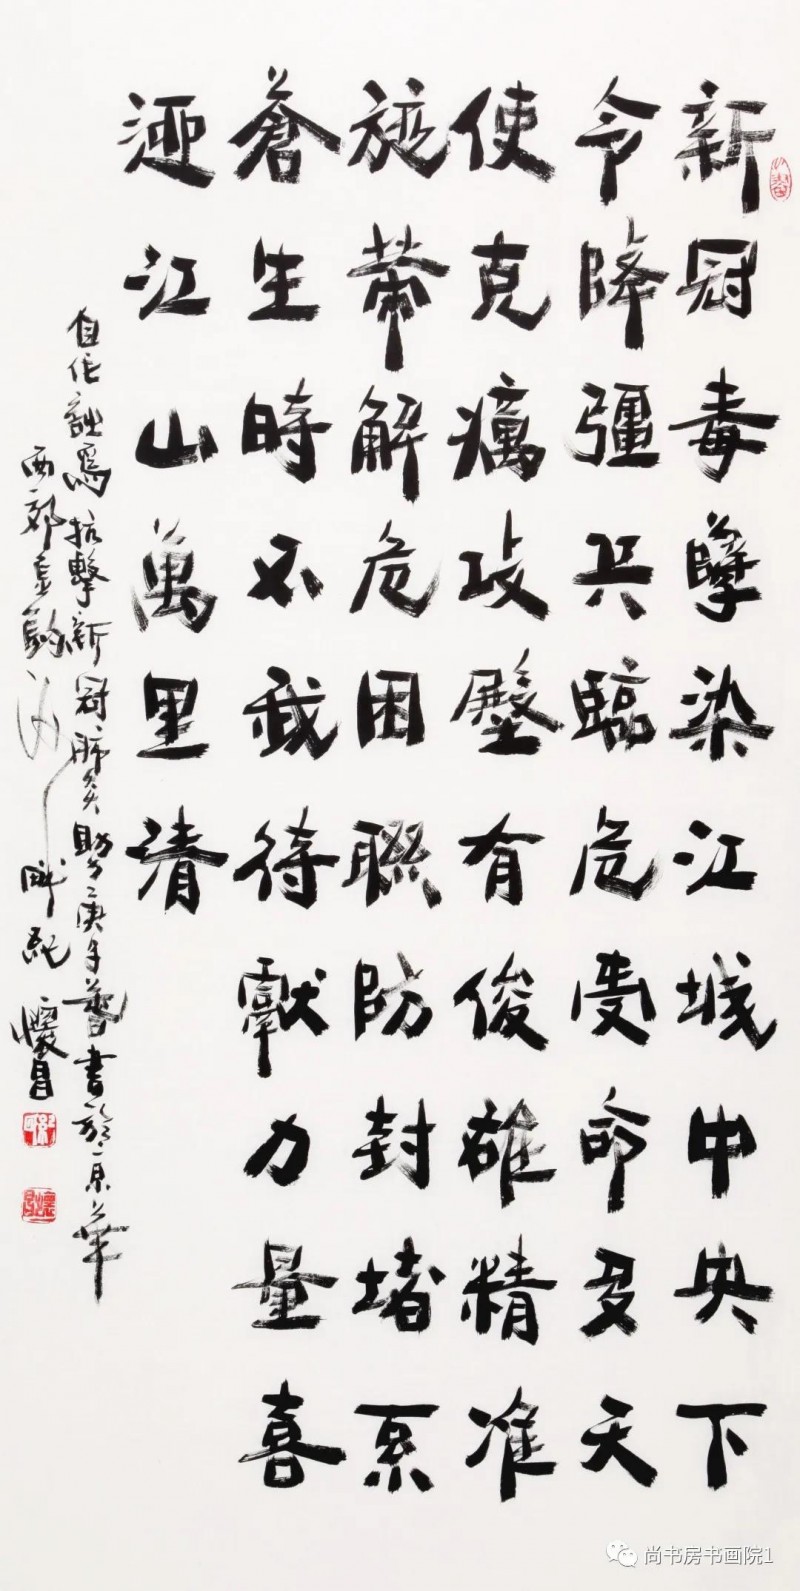 新冠毒孽染江城中央下
令降彊兵臨危受命多天
使克癘攻有俊雄精准
施策解危困聯防封堵系
蒼生時不我待獻力量喜
迎江山萬里清
自作詩為抗擊新冠肺炎助力庚子春書於京華
西郊河畔紀懷昌
尚书房书画院1